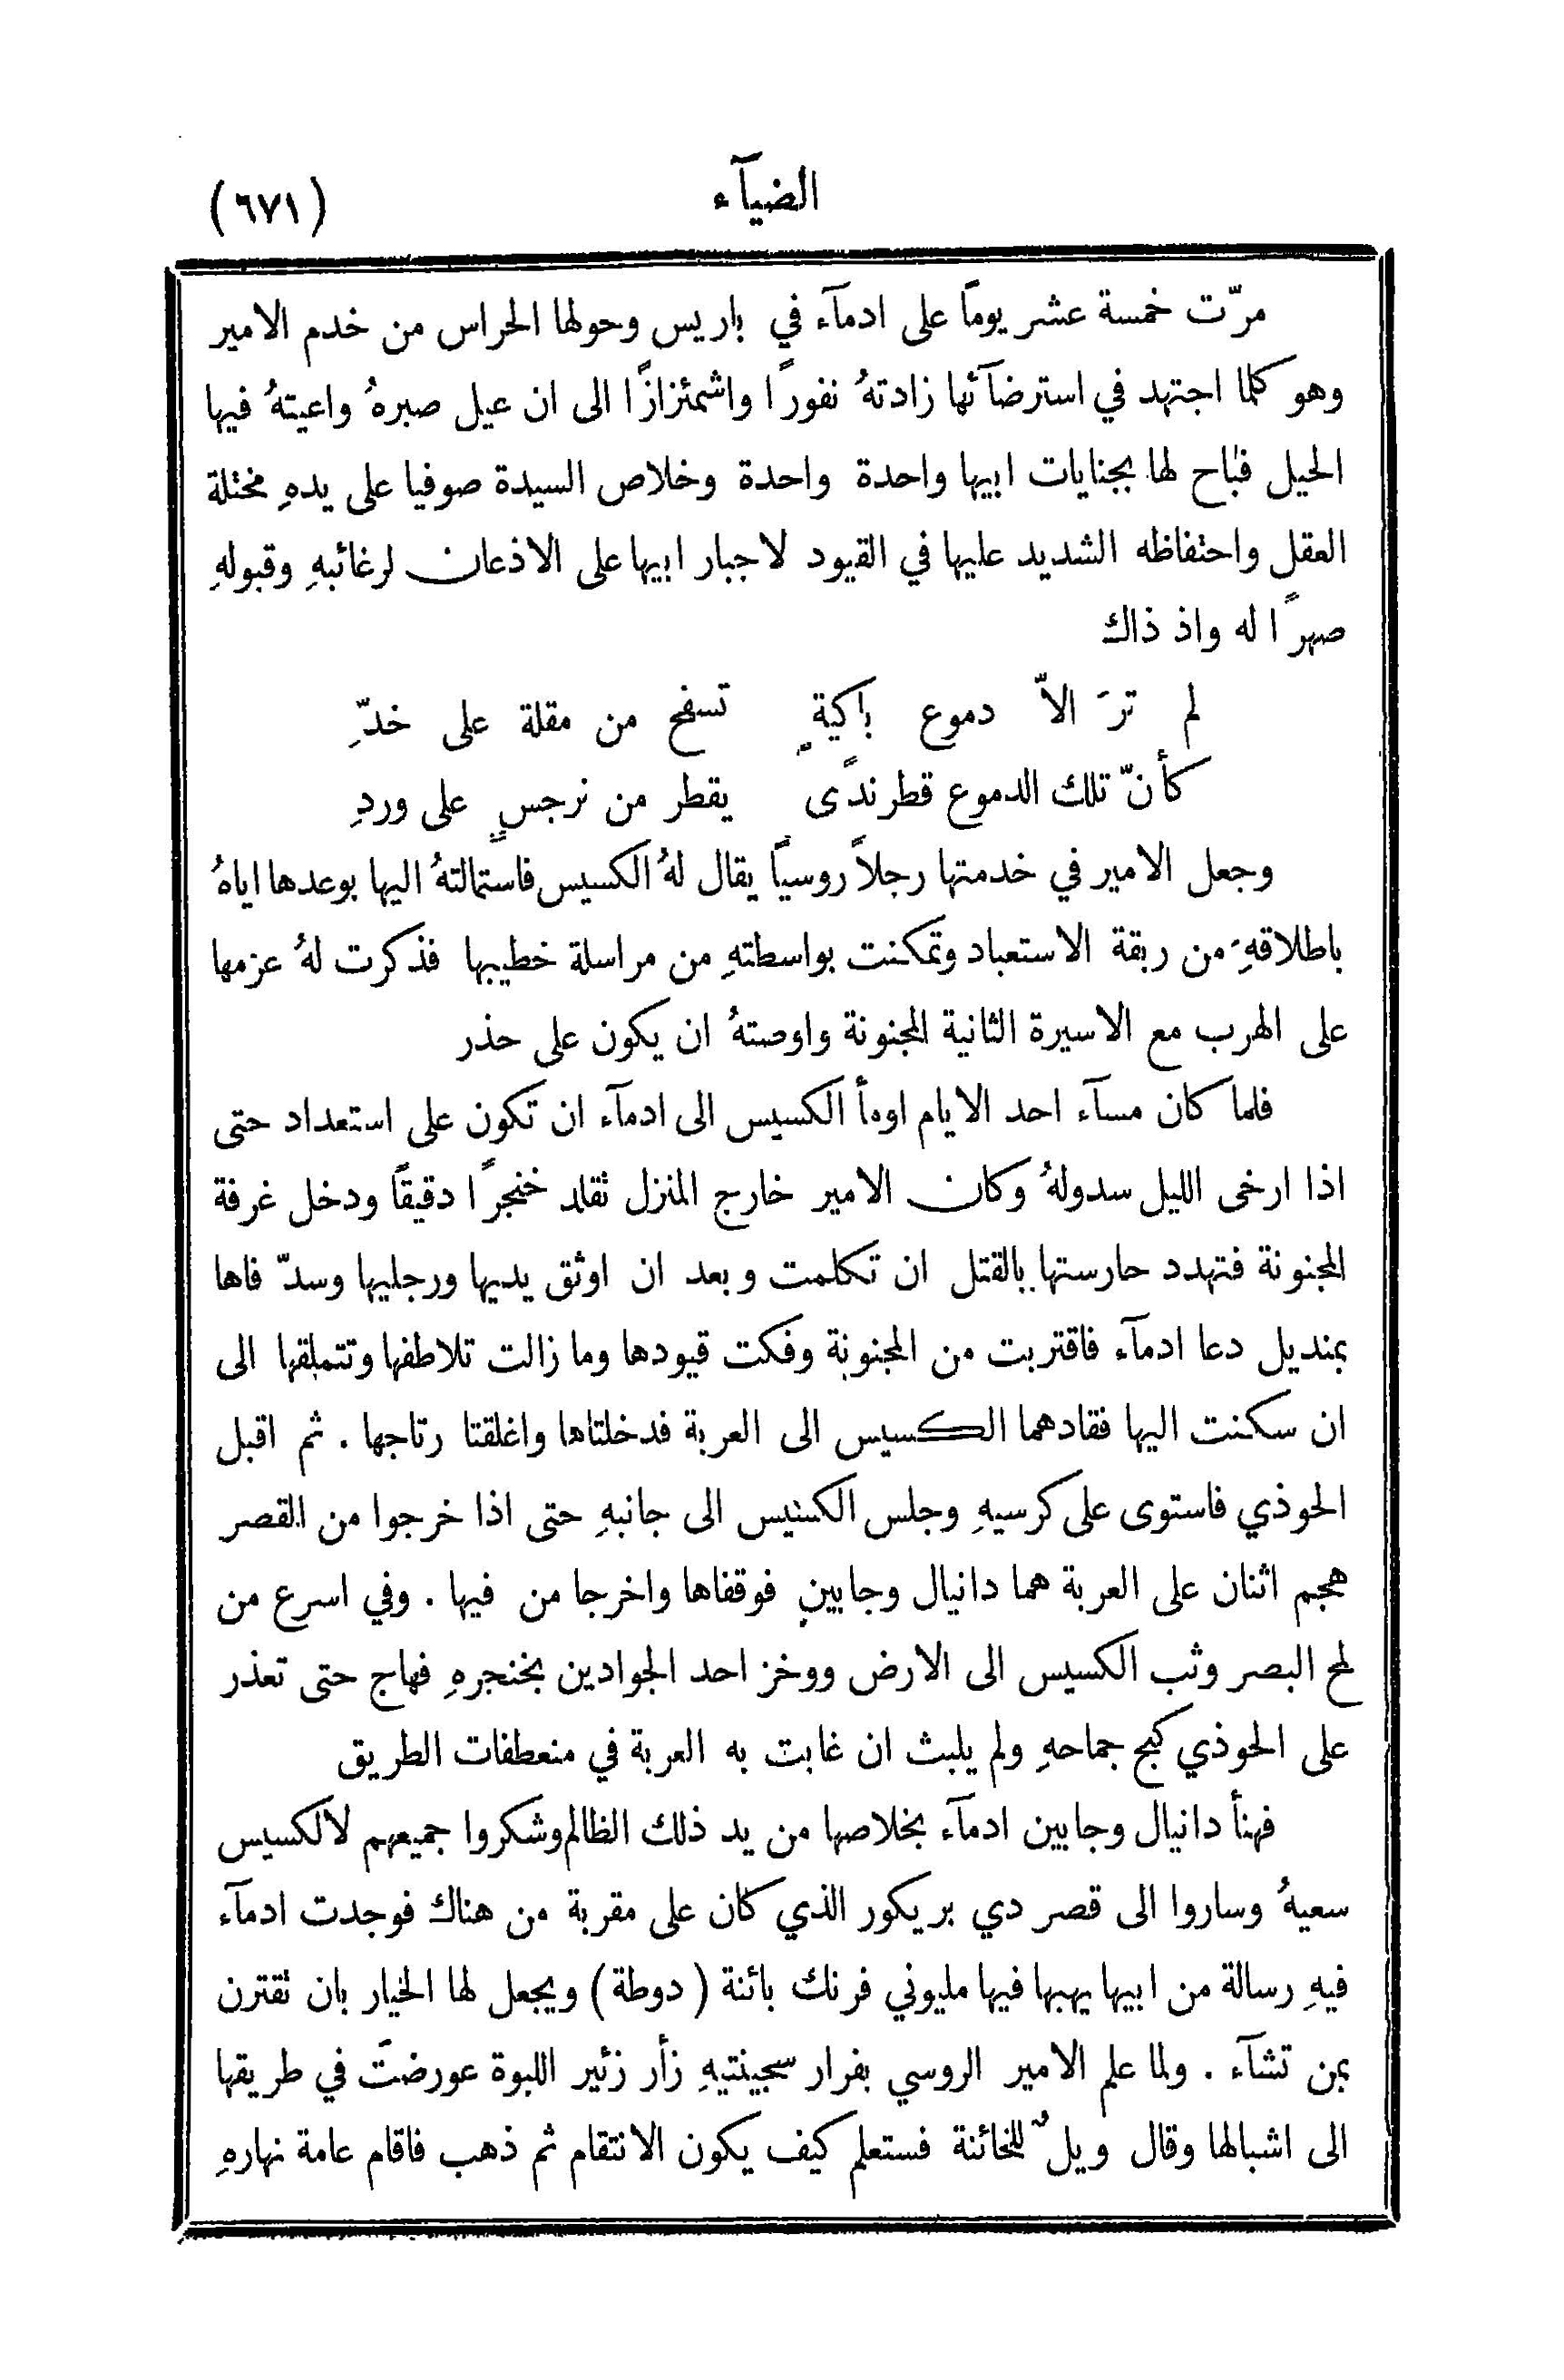 الضيآء
(٦٧١)
مرّت خمسة عشر يوماً على ادمآء في باريس وحولها الحراس من خدم الامير
وهو كلما اجتهد في استرضآئها زادتهُ نفوراً واشمئزازاً الى ان عيل صبرهُ واعيتهُ فيها
الحيل فباح لها بجنايات ابيها واحدة واحدة وخلاص السيدة صوفيا على يدهِ مختلة
العقل واحتفاظه الشديد عليها في القيود لاجبار ابيها على الاذعان لرغائبهِ وقبولهِ
صهراً له واذ ذاك
لم ترَ الاّ دموع باكيةٍ تسفح من مقلة على خدِّ
كأنّ تلك الدموع قطر ندًى يقطر من نرجسٍ على وردِ
وجعل الامير في خدمتها رجلاً روسيّاً يقال لهُ الكسيس فاستمالتهُ اليها بوعدها اياهُ
باطلاقهِ من ربقة الاستعباد وتمكنت بواسطتهِ من مراسلة خطيبها فذكرت لهُ عزمها
على الهرب مع الاسيرة الثانية المجنونة واوصتهُ ان يكون على حذر
فلما كان مسآء احد الايام اومأ الكسيس الى ادمآء ان تكون على استعداد حتى
اذا ارخى الليل سدولهُ وكان الامير خارج المنزل تقلد خنجراً دقيقاً ودخل غرفة
المجنونة فتهدد حارستها بالقتل ان تكلمت وبعد ان اوثق يديها ورجليها وسدّ فاها
بمنديل دعا ادمآء فاقتربت من المجنونة وفكت قيودها وما زالت تلاطفها وتتملقها الى
ان سكنت اليها فقادهما الكسيس الى العربة فدخلتاها واغلقتا رتاجها . ثم اقبل
الحوذي فاستوى على كرسيهِ وجلس الكسيس الى جانبهِ حتى اذا خرجوا من القصر
هجم اثنان على العربة هما دانيال وجابين فوقفاها واخرجا من فيها . وفي اسرع من
لمح البصر وثب الكسيس الى الارض ووخز احد الجوادين بخنجرهِ فهاج حتى تعذر
على الحوذي كبح جماحهِ ولم يلبث ان غابت به العربة في منعطفات الطريق
فهنأ دانيال وجابين ادمآء بخلاصها من يد ذلك الظالم وشكروا جميعهم لالكسيس
سعيهُ وساروا الى قصر دي بريكور الذي كان على مقربة من هناك فوجدت ادمآء
فيهِ رسالة من ابيها يهبها فيها مليوني فرنك بائنة ( دوطة ) ويجعل لها الخيار بان تقترن
بمن تشآء . ولما علم الامير الروسي بفرار سجينتيهِ زأر زئير اللبوة عورضت في طريقها
الى اشبالها وقال ويلٌ للخائنة فستعلم كيف يكون الانتقام ثم ذهب فاقام عامة نهارهِ